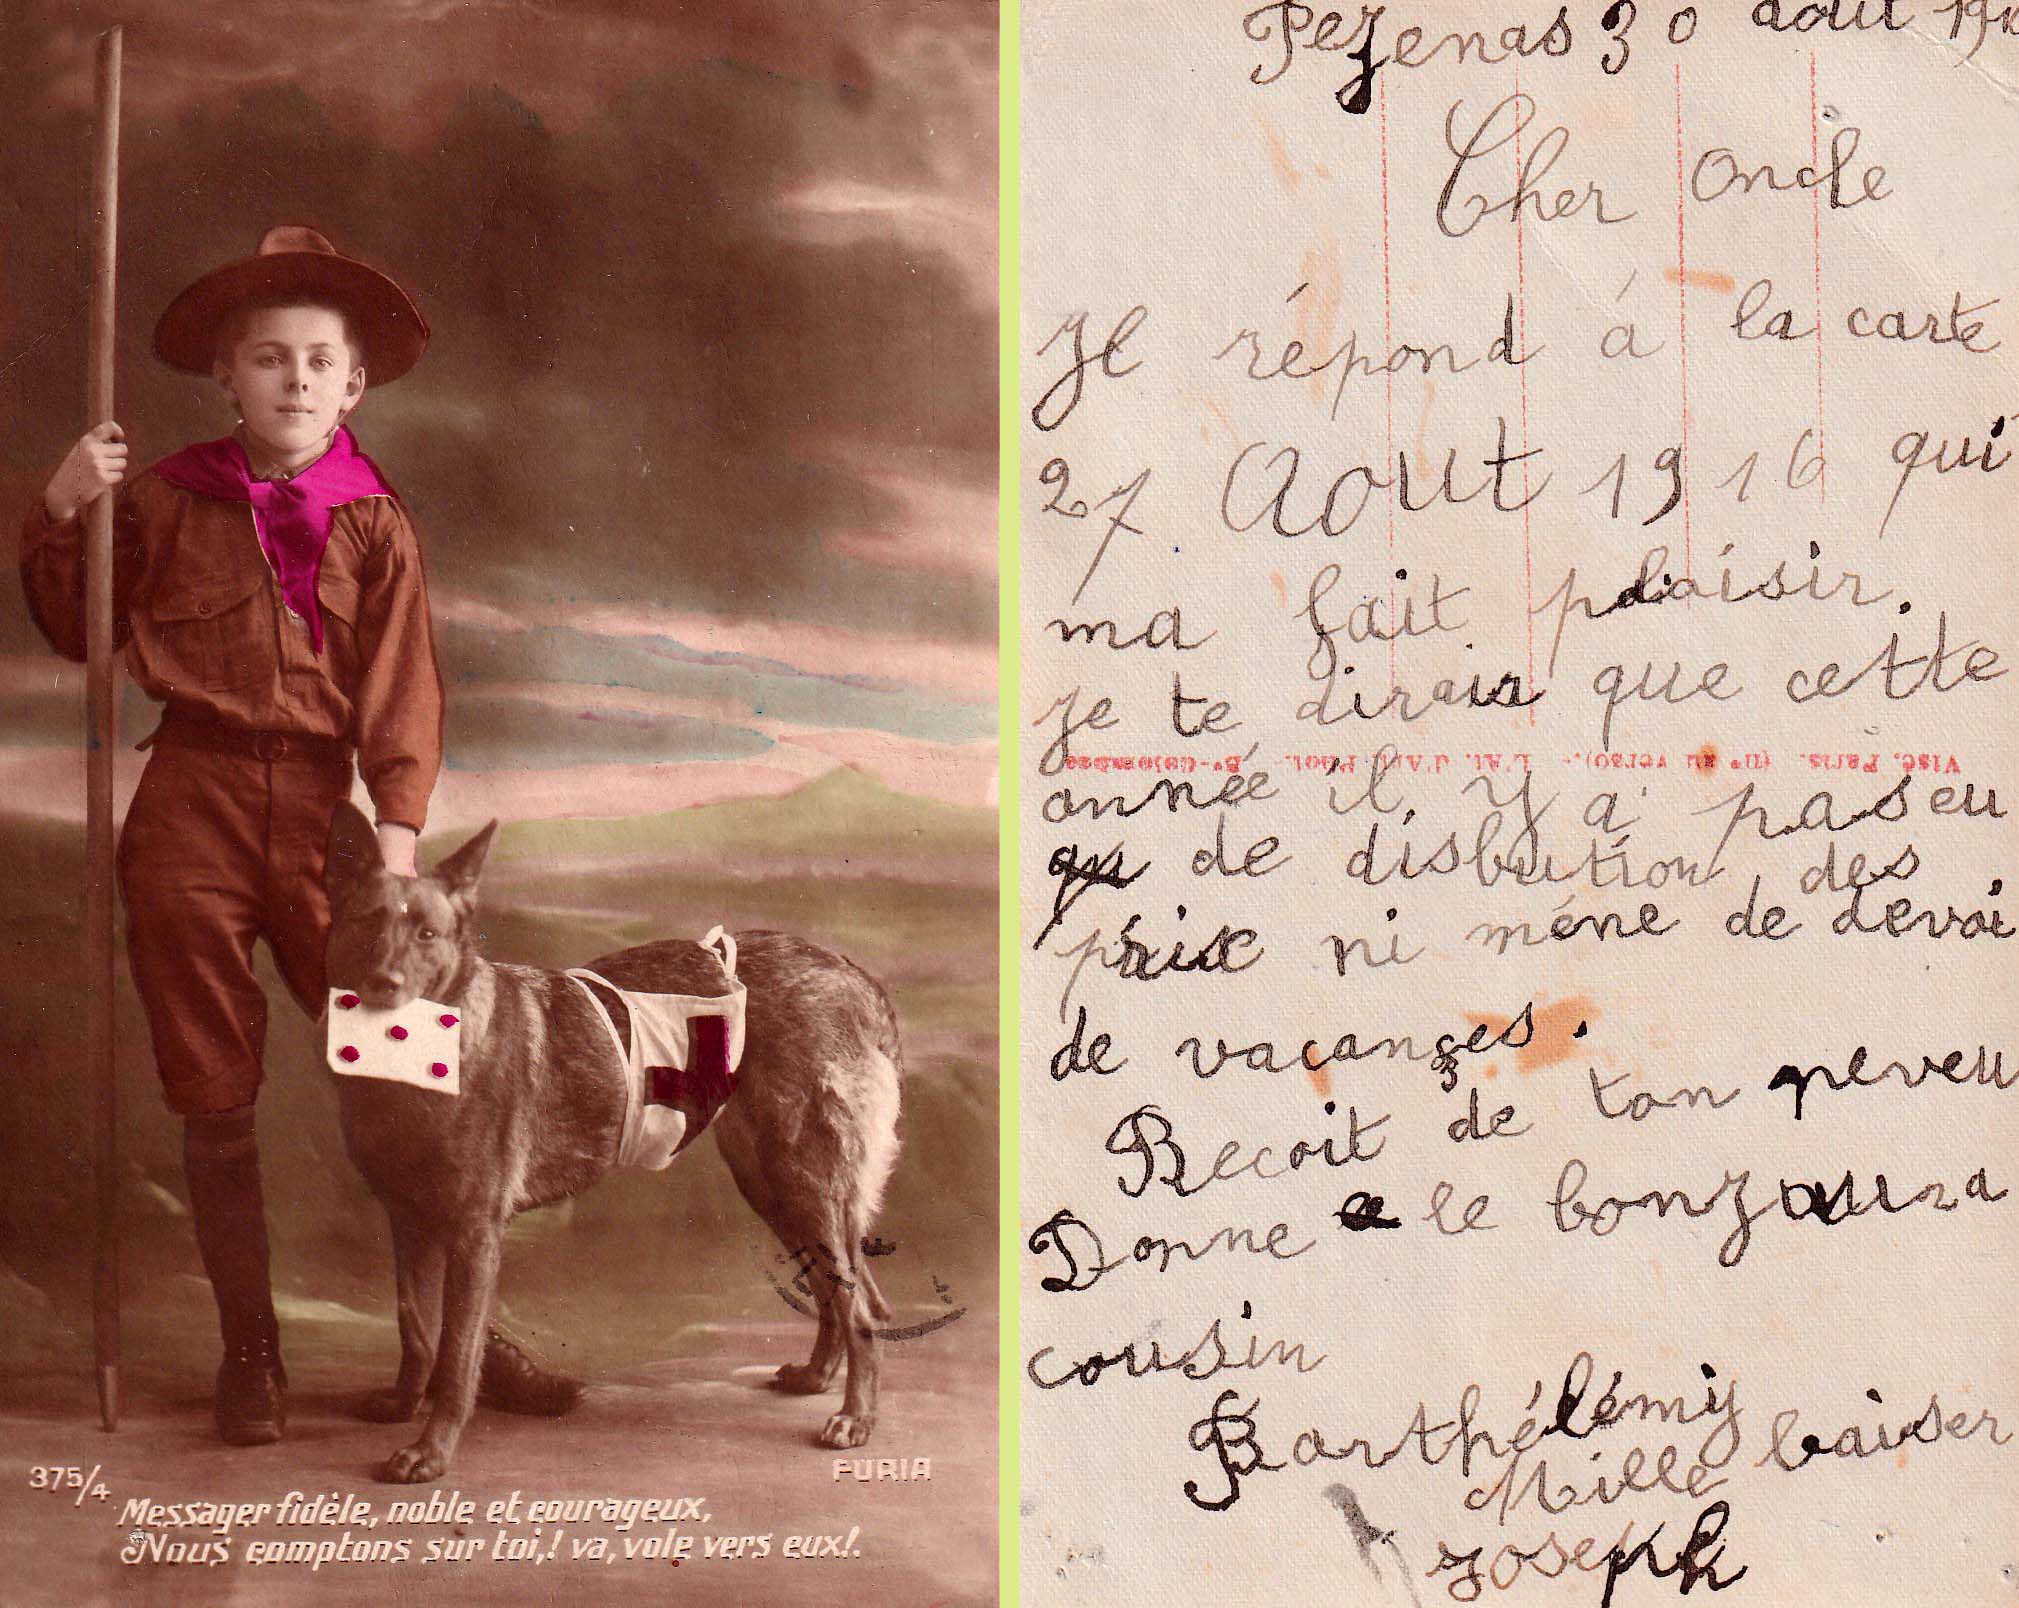 375/4
FURIA
Messager fidèle, noble et courageux,
Nous comptons sur toi,! va, vole vers eux!.
Pezenas 30 août
Cher oncle
Je répond à la carte
27 Aout 1916 qui
ma fait plaisir.
je te dirais que cette
année il y a pas eu
de disbution des
prix ni mène de devoi
de vacançes.
Recoit de ton neveu
Donne le bonzour a
cousin
Barthélémy
Mille baiser
Joseph
Visé. Paris. (nº au verso).- L'At. d'Art. Phot.- Bs-Colombes